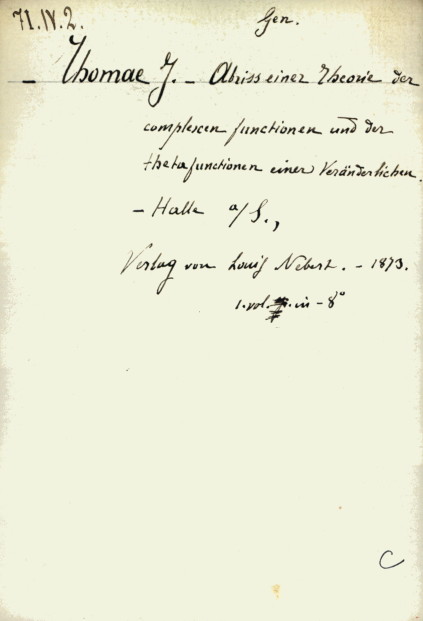 71.IV.2.
Gen.
— Thomae J. — Abriss einer Theorie der
complexen functionen und der
thetafunctionen einer Veränderlichen.
— Halle a/S.,
Verlag von Louis Nebert. — 1873.
1. vol. in - 8°
C